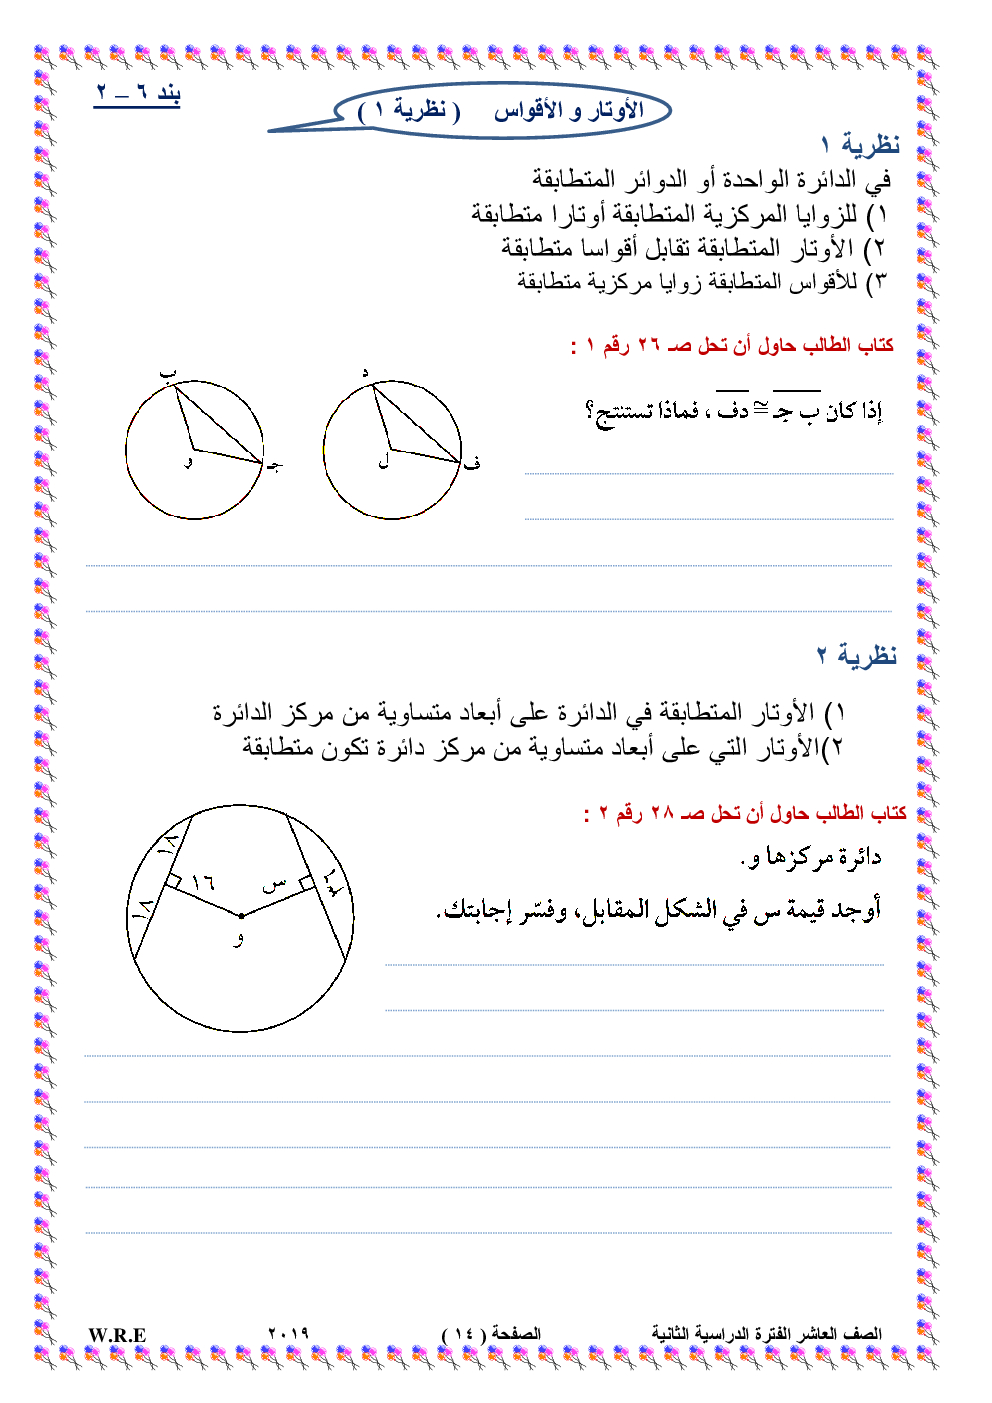 بند ٦ – ٢
الأوتار و الأقواس ( نظرية ١ )
نظرية ١
في الدائرة الواحدة أو الدوائر المتطابقة
١) للزوايا المركزية المتطابقة أوتارا متطابقة
٢) الأوتار المتطابقة تقابل أقواسا متطابقة
٣) للأقواس المتطابقة زوايا مركزية متطابقة
كتاب الطالب حاول أن تحل صـ ٢٦ رقم ١ :
إذا كان ب جـ ≅ دف ، فماذا تستنتج؟
ب
و
جـ
د
ل
ف
نظرية ٢
١) الأوتار المتطابقة في الدائرة على أبعاد متساوية من مركز الدائرة
٢)الأوتار التي على أبعاد متساوية من مركز دائرة تكون متطابقة
كتاب الطالب حاول أن تحل صـ ٢٨ رقم ٢ :
دائرة مركزها و.
أوجد قيمة س في الشكل المقابل، وفسّر إجابتك.
١٨
١٨
١٦
س
و
الصف العاشر الفترة الدراسية الثانية
الصفحة ( ١٤ )
٢٠١٩
W.R.E